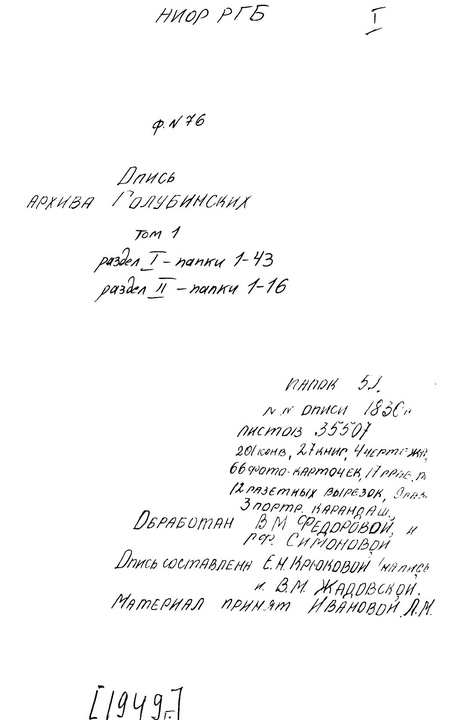 НИОР РГБ
I
ф. N 76
Опись
АРХИВА ГОЛУБИНСКИХ
том 1
раздел I – папки 1-43
раздел II – папки 1-16
ПАПОК 51.
N.N ОПИСИ
ЛИСТОВ 35507
201 КОНВ, 27 КНИГ, 4 ЧЕРТЕЖА,
66 ФОТО-КАРТОЧЕК, 17
12 ГАЗЕТНЫХ ВЫРЕЗОК,
3 ПОРТР. КАРАНДАШ.
ОБРАБОТАН В.М ФЕДОРОВОЙ, и
СИМОНОВОЙ
ОПИСЬ СОСТАВЛЕНА Е.Н. КРЮКОВОЙ
и В.М. ЖАДОВСКОЙ.
МАТЕРИАЛ ПРИНЯТ ИВАНОВОЙ Л.М.
[1949г.]